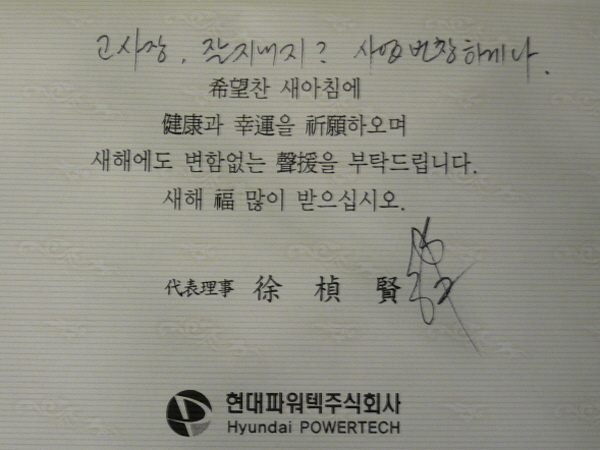 고사장, 잘지내지? 사업번창하게나.
希望찬 새아침에
健康과 幸運을 祈願하오며
새해에도 변함없는 聲援을 부탁드립니다.
새해 福 많이 받으십시오.
代表理事 徐 楨 賢
현대파워텍주식회사
Hyundai POWERTECH